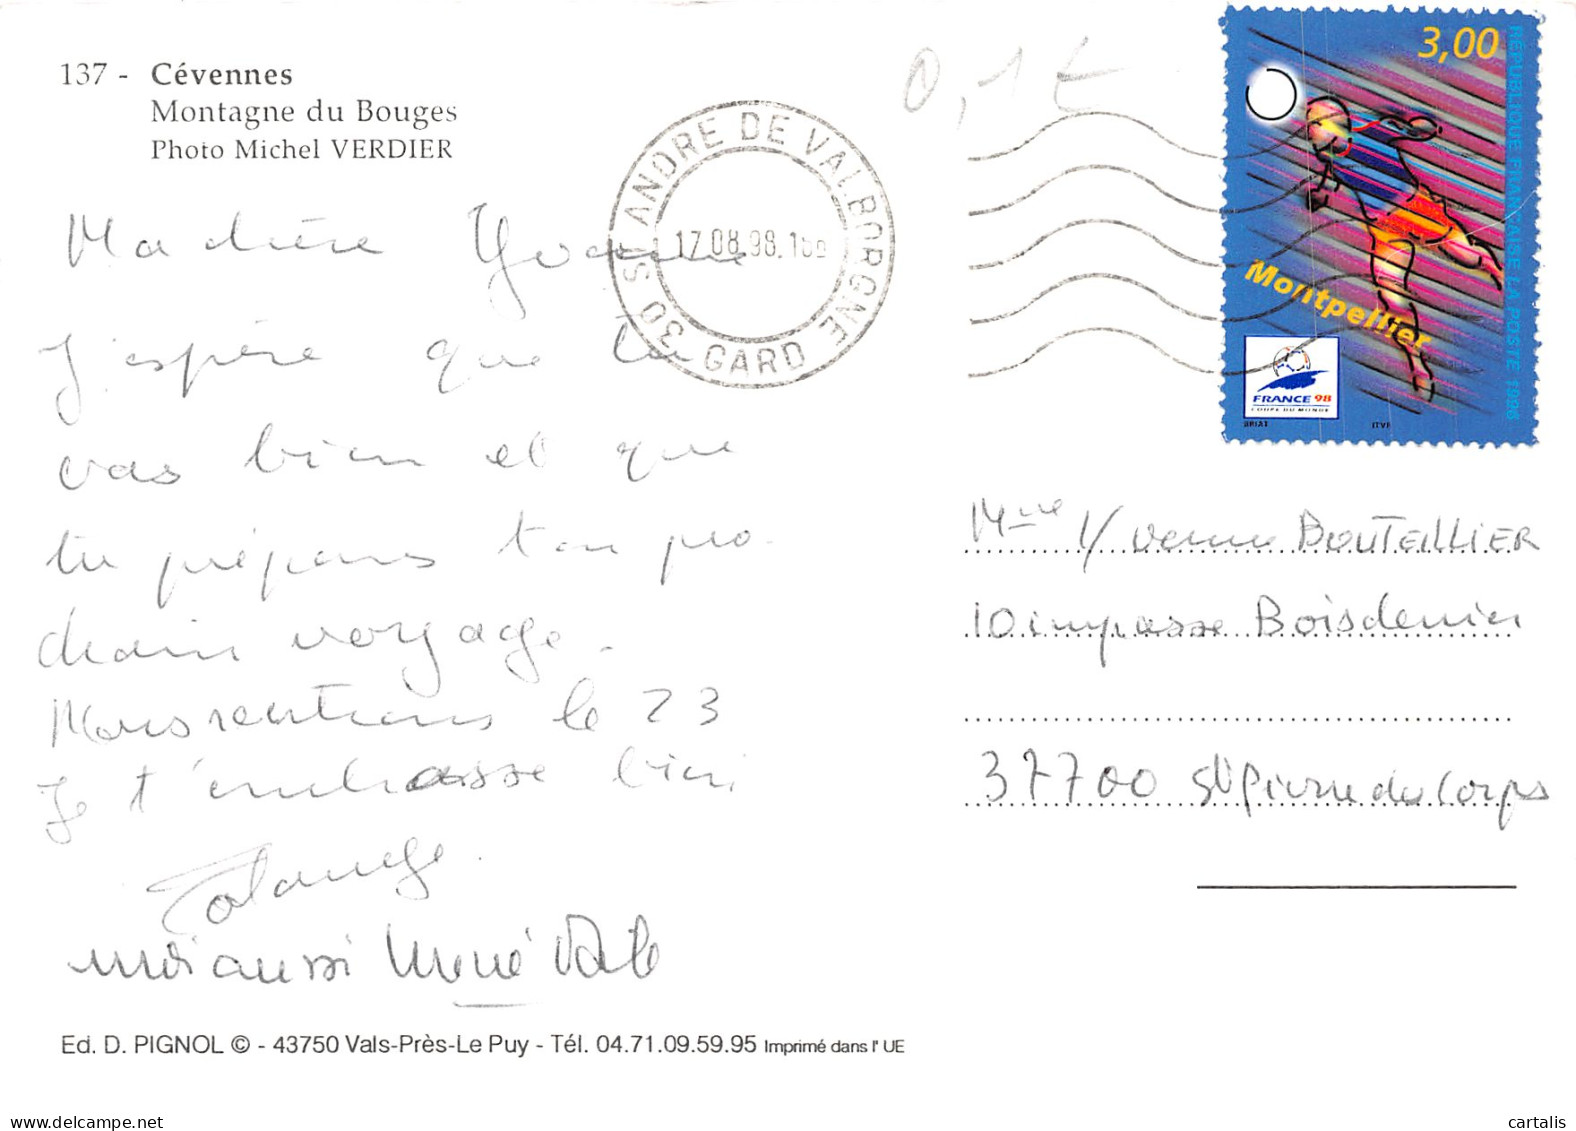 137 - Cévennes
Montagne du Bouges
Photo Michel VERDIER
0,1€
ST ANDRE DE VALBORGNE
17.08.98.
30 GARD
3,00
REPUBLIQUE FRANÇAISE LA POSTE 1996
Montpellier
FRANCE 98
COUPE DU MONDE
BRIAT
ITVF
Ma chère Yvonne
J'espère que tu
vas bien et que
tu prépares ton pro-
chain voyage.
Nous rentrons le 23
Je t'embrasse bien
Solange.
moi aussi
Mme Yvonne BOUTEILLIER
10 impasse Boisdenier
37700 St Pierre des Corps
Ed. D. PIGNOL © - 43750 Vals-Près-Le Puy - Tél. 04.71.09.59.95 Imprimé dans l' UE
delcampe.net
cartalis